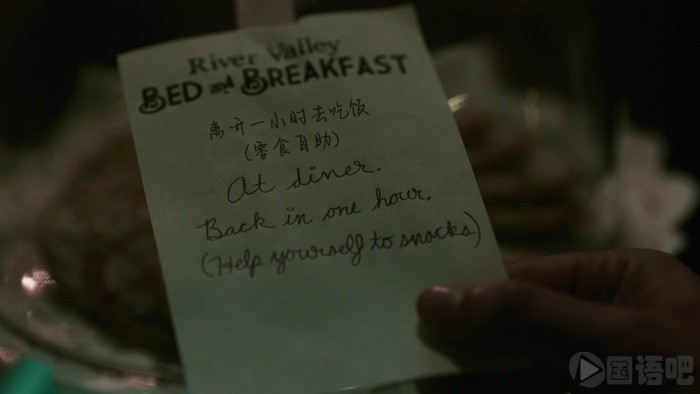 River Valley
BED and BREAKFAST
离开一小时去吃饭
(零食自助)
At diner.
Back in one hour.
(Help yourself to snacks)
国语吧